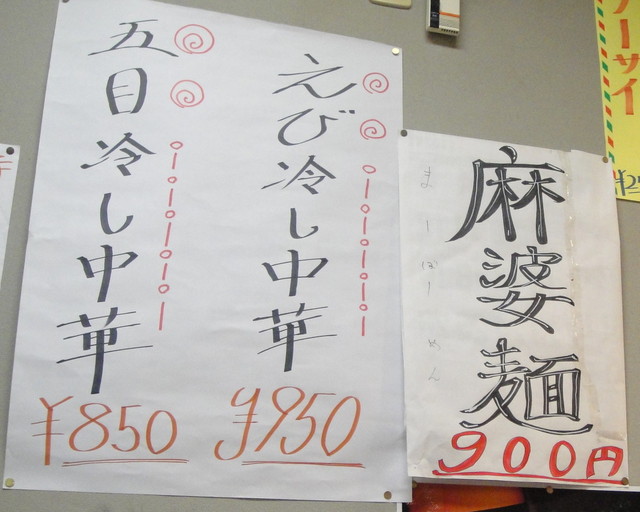 えび冷し中華
¥950
五目冷し中華
¥850
麻婆麺
まーぼーめん
900円
ーサイ
¥25